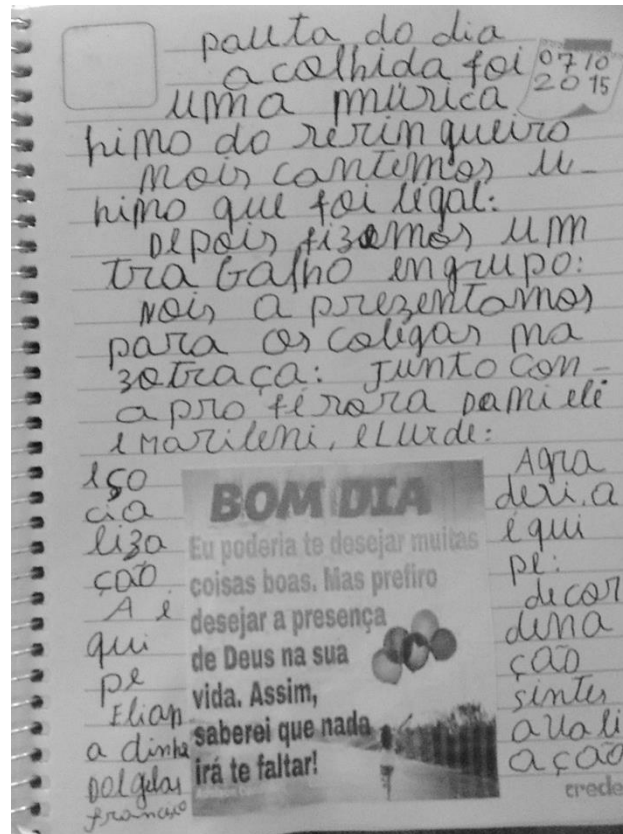 pauta do dia
07 10
2015
acolhida foi
uma murica
himo do reringueiro
mois cantemos u-
himo que foi legal:
Depois fizemos um
tra balho engrupo:
Nois a prezentamos
para os coligas ma
zotraça: Junto con-
a pro férora Daniele
e Marileni, e Lurde:
iço
cia
liza
ção
A e
qui
pe
Elian
a dinha
Dolgelas
francisco
BOM DIA
Eu poderia te desejar muitas
coisas boas. Mas prefiro
desejar a presença
de Deus na sua
vida. Assim,
saberei que nada
irá te faltar!
Agra
deri.a
equi
pe:
decor
dena
ção
sintes
avali
ação
crede